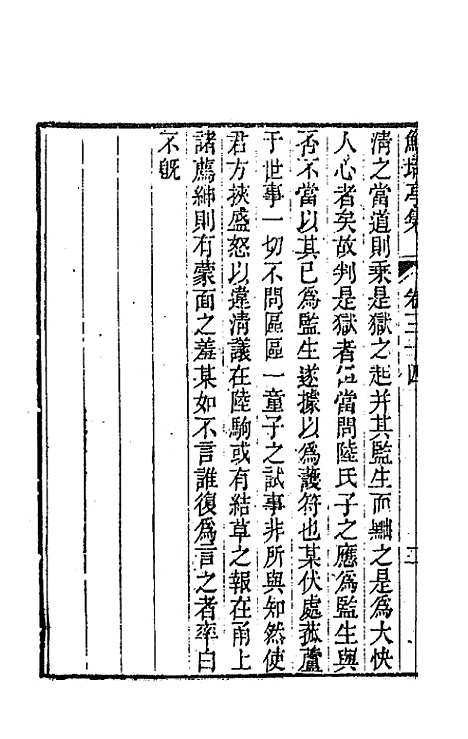 鮚埼亭集 卷三十四 二
清之當道則乘是獄之起并其監生而黜之是為大快
人心者矣故判是獄者但當問陸氏子之應為監生與
否不當以其已為監生遂據以為護符也某伏處菰蘆
于世事一切不問區區一童子之試事非所與知然使
君方挾盛怒以違清議在陸駒或有結草之報在甬上
諸薦紳則有蒙面之羞某如不言誰復為言之者率白
不旣